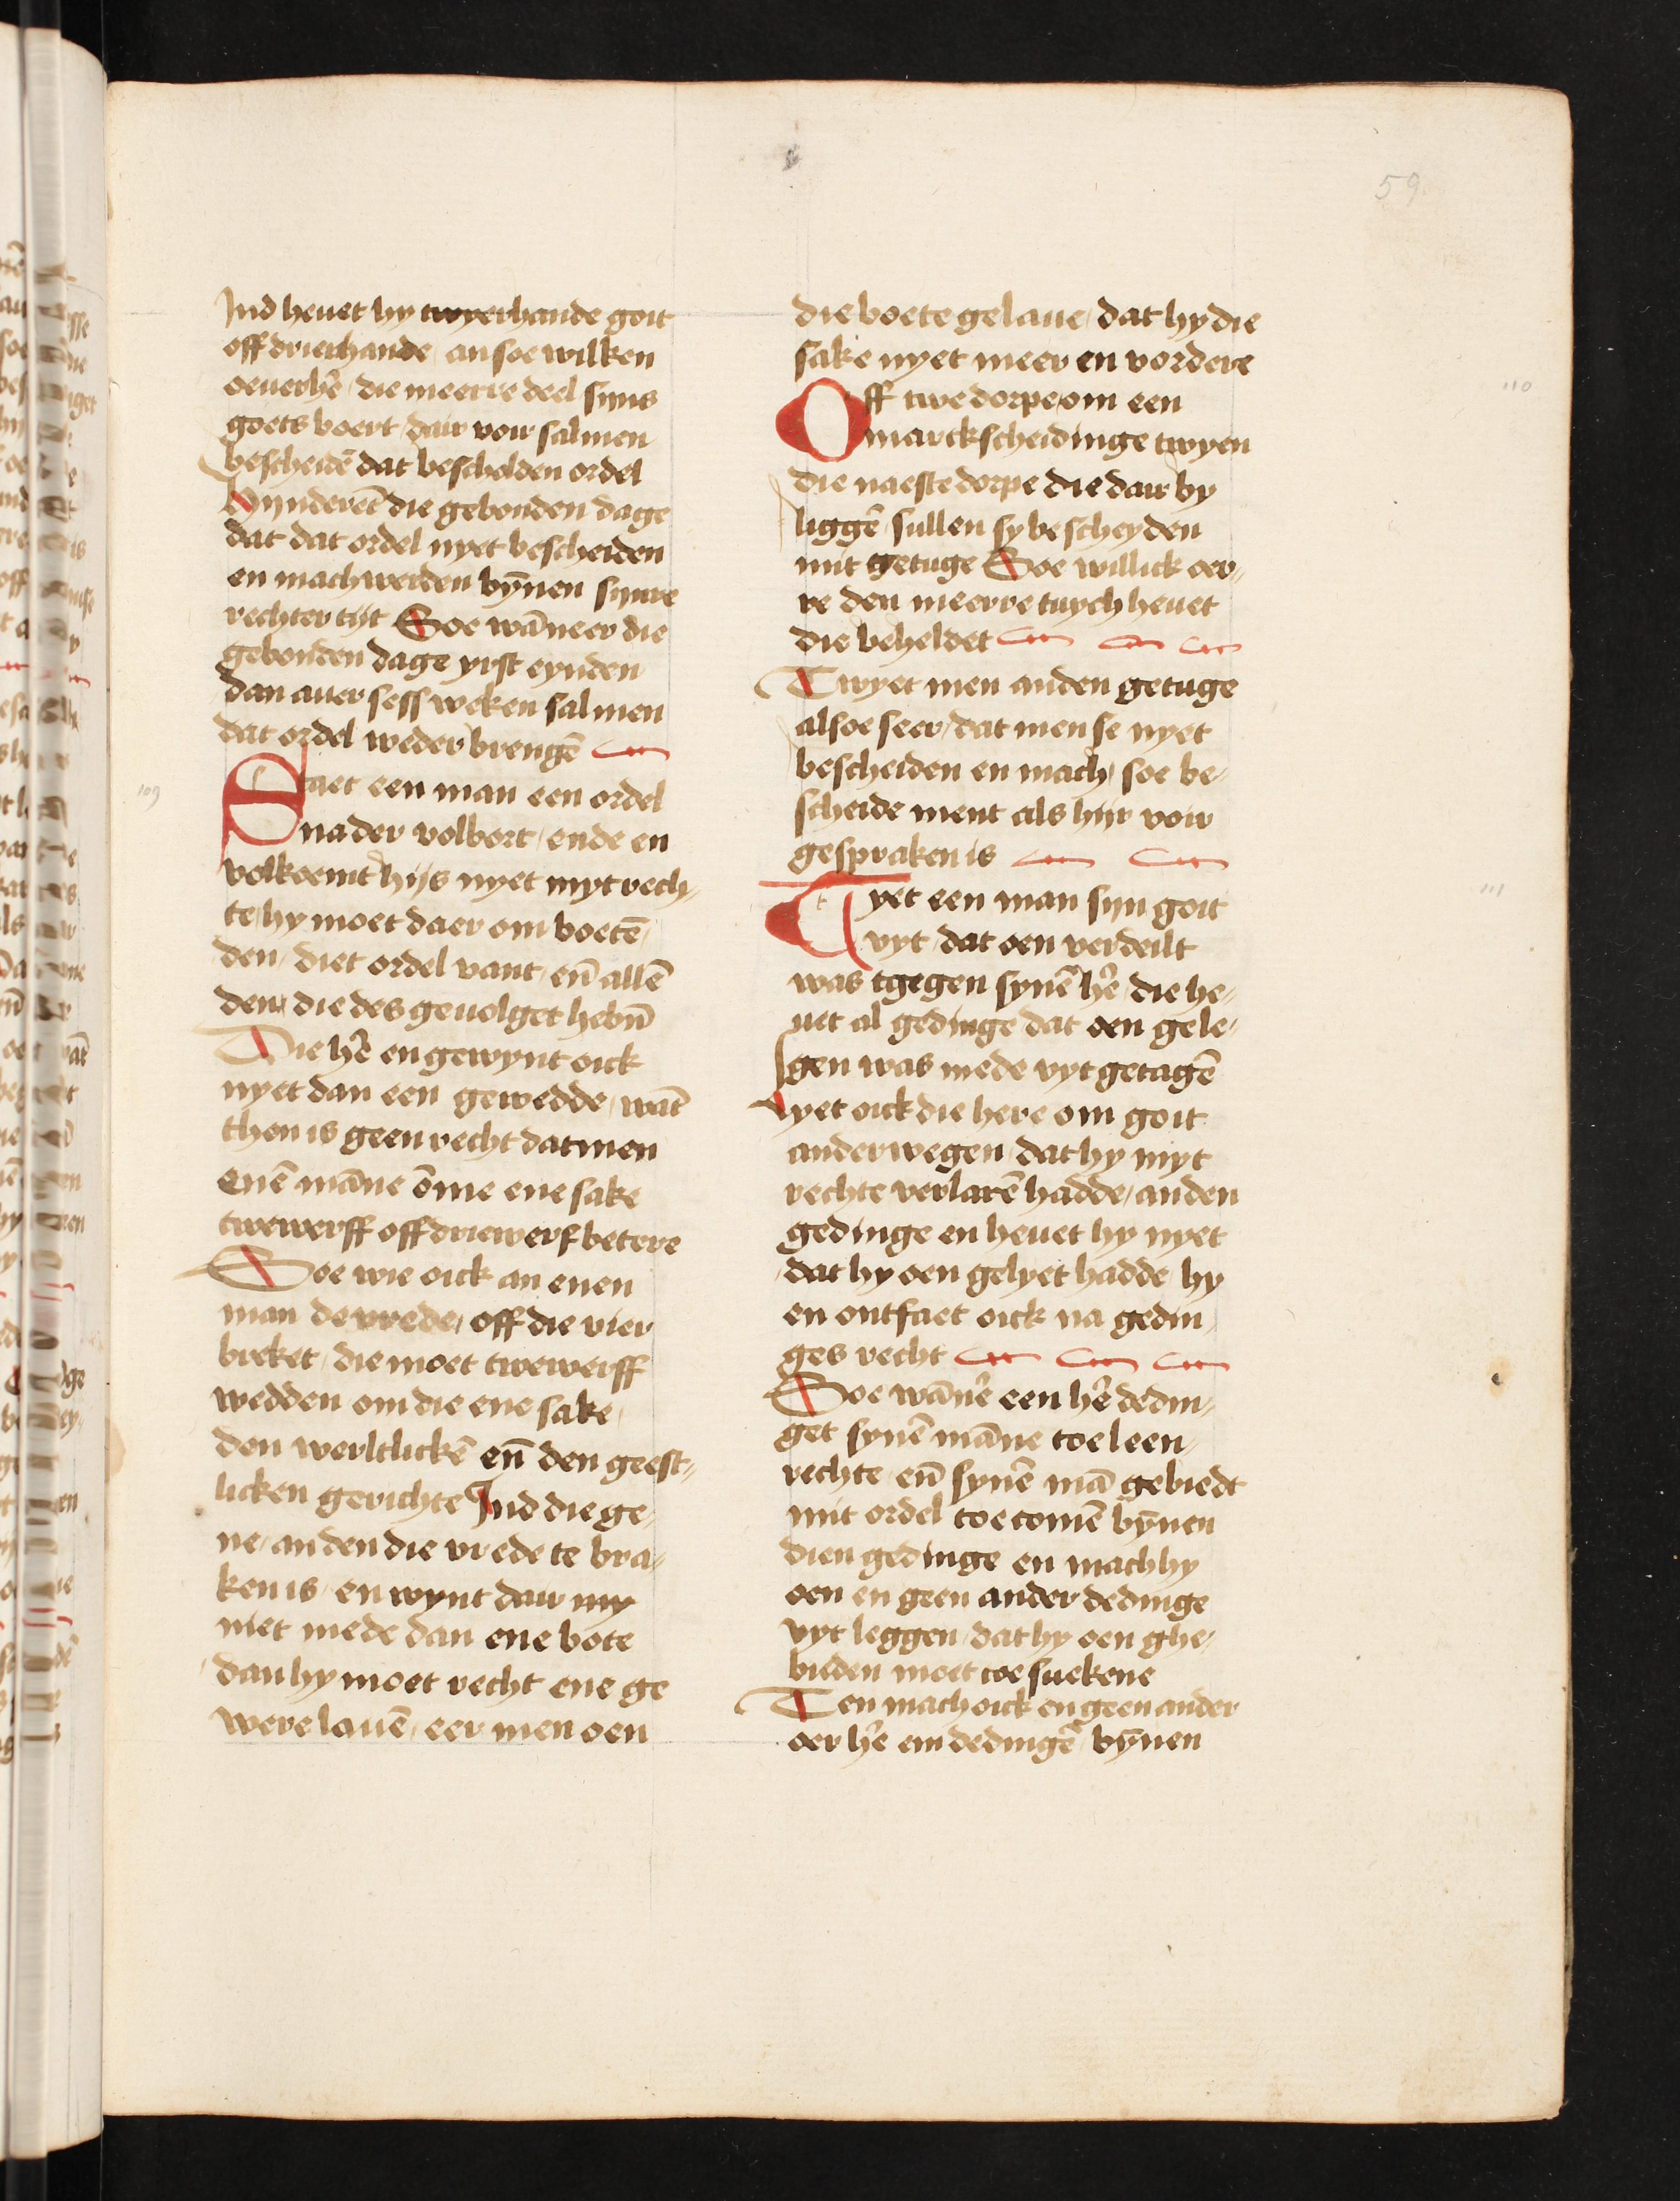 59
Ind heuet hy twyerhande goit
off drierhande / an soe wilken
oeuerhē / die meerre deel syns
goets boert / dair voir salmen
bescheidē dat bescholden ordel
Hynderēt die gebonden dage
dat dat ordel nyet bescheiden
en mach werden bȳnen synre
rechter tijt Soe wāneer die
gebonden dage yrst eynden
dan auer sess weken salmen
dat ordel weder brengē
109
Staet een man een ordel
na der volbort / ende en
volkoemt hijs nyet myt rech„
te / hy moet daer om boetē /
den / diet ordel vant / eñ allē
den / die des geuolget hebñ
Die hē en gewynt oick
nyet dan een gewedde / wāt
then is geen recht datmen
Enē māne ōme ene sake
twewerff off driewerf betere
Soe wie oick an enen
man de vrede / off die vier
breket / die moet twewerff
wedden om die ene sake /
den werltlickē eñ den geest„
licken gerichte Ind die ge„
ne / an den die vrede te bra„
ken is / en wynt dair my
niet mede dan ene bote
dan hy moet recht ene ge
were lauē / eer men oen
die boete gelaue / dat hy die
sake nyet meer en vordere
110
Off twe dorpe / om een
marckscheidinge twyen
die naeste dorpe die dair by
liggē / sullen sy bescheyden
mit getuge Soe willick oer„
re den meerre tuych heuet
die beheldet
Twyet men an den getuge
alsoe seer / dat men se nyet
bescheiden en mach / soe be„
scheide ment als hijr voir
gespraken is
111
Tyet een man sijn goit
vyt / dat oen verdeilt
was tgegen synē hē / die he„
uet al gedinge dat oen gele„
gen was mede vyt getagē
Vyet oick die here om goit
anderwegen / dat hy myt
rechte verlarē hadde / an den
gedinge en heuet hy nyet
dat hy oen gelyet hadde / hy
en ontfaet oick na gedin„
ges recht
Soe wānē een hē dedin„
get synē māne toe leen„
rechte / eñ synē mā gebiedt
mit ordel toe comē bȳnen
dien gedinge en mach hy
oen en geen ander dedinge
vyt leggen / dat hy oen ghe„
bieden moet toe suekene
Ten mach oick en geen ander
oer hē em dedingē bȳnen